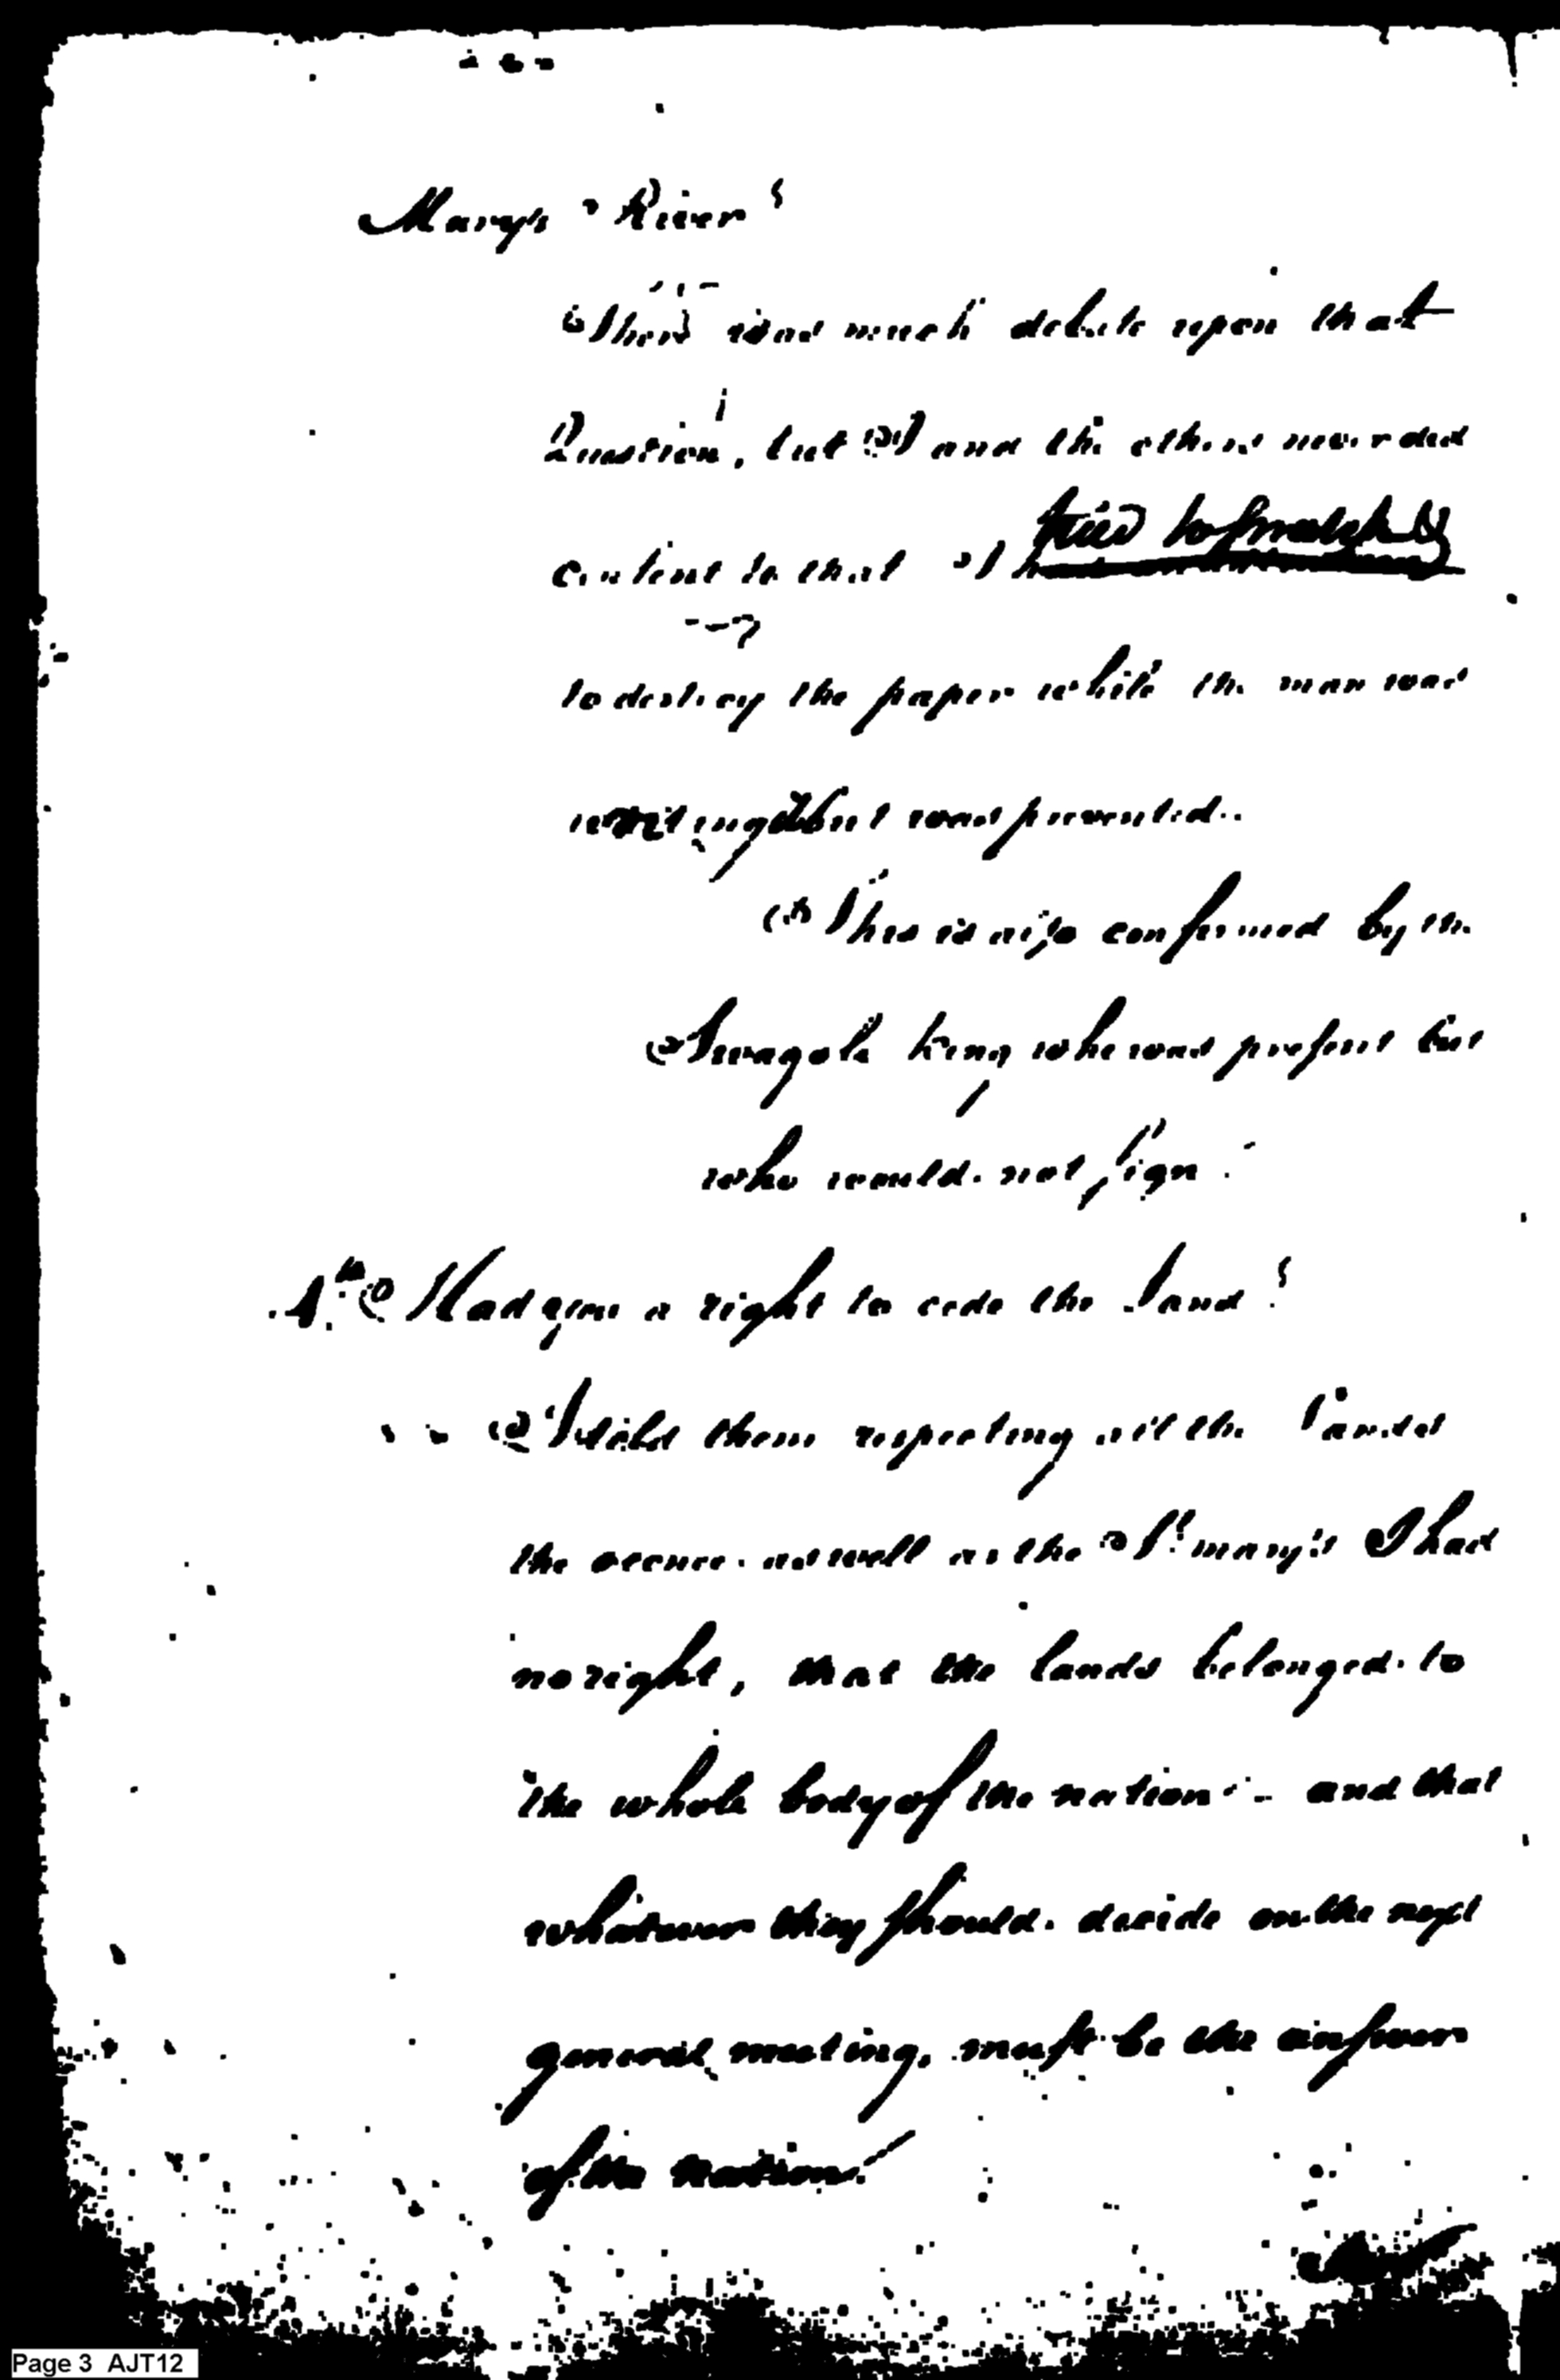 Marys River?
There was much debate upon that
Question, but I and the others never did
consent to that I tried to snatch &
to destroy the paper while the man was
writing but was prevented.
This is also confirmed by the
king who was present but
who would not sign.
4th Had you a right to cede the Land?
I told them respecting all the Lands
the oconee as well as the St. mary's I had
no right, that the lands belonged to
the whole body of the nation - and that
whatever they should decide on the next
general meeting, must be the answer
of the nation.
Page 3 AJT12